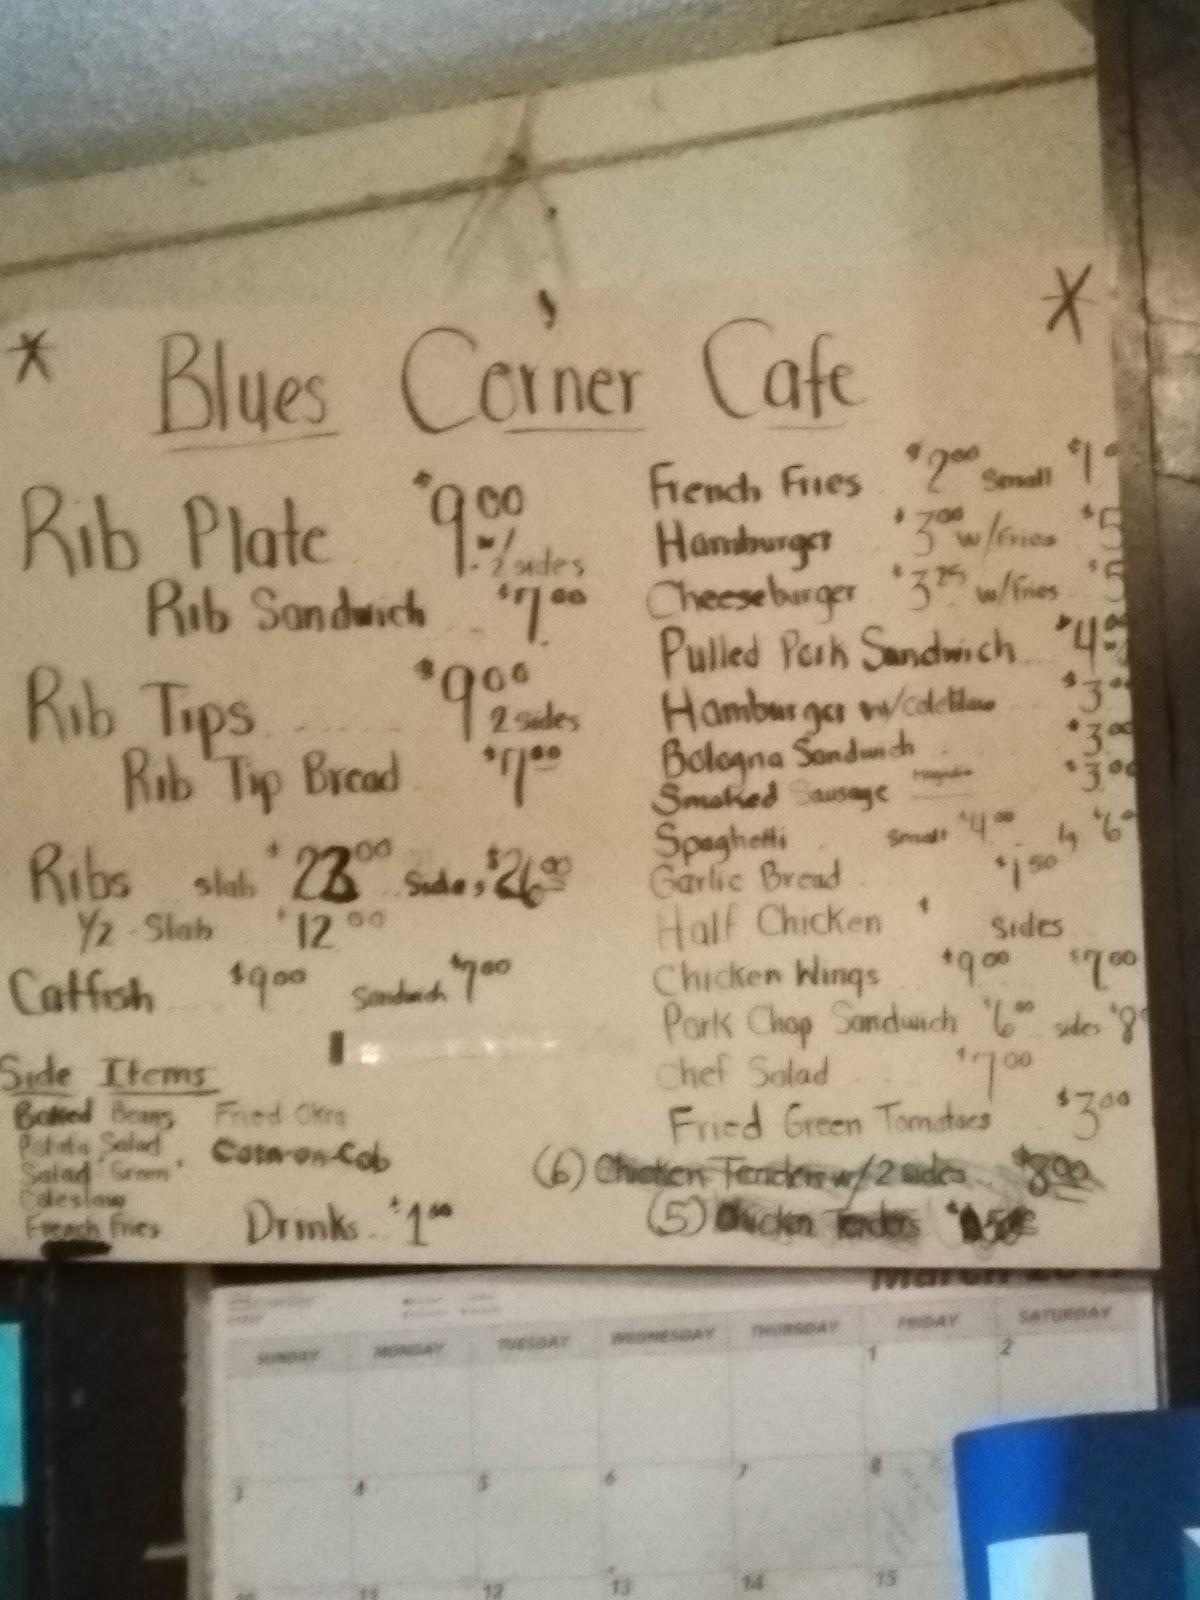 * Blues Corner Cafe *
Rib Plate $9.00 w/ 2 sides
Rib Sandwich $7.00
Rib Tips $9.00 2 sides
Rib Tip Bread $7.00
Ribs slab $23.00 Sides $26.00
1/2 Slab $12.00
Catfish $9.00 Sandwich $7.00
Side Items
Baked Beans Fried Okra
Potato Salad Corn-on-Cob
Salad "Green"
Coleslaw
French Fries
Drinks $1.00
French Fries $2.00 Small $1
Hamburger $3.00 w/fries $5
Cheeseburger $3.25 w/fries $5
Pulled Pork Sandwich $4.00
Hamburger w/coleslaw $3.00
Bologna Sandwich $3.00
Smoked Sausage Magnolia $3.00
Spaghetti small $4.00 lg $6
Garlic Bread $1.50
Half Chicken $ sides
Chicken Wings $9.00 $7.00
Pork Chop Sandwich $6.00 sides $8
Chef Salad $7.00
Fried Green Tomatoes $3.00
(6) Chicken Tenders w/ 2 sides $8.00
(5) Chicken Tenders
March
SUNDAY MONDAY TUESDAY WEDNESDAY THURSDAY FRIDAY SATURDAY
1 2
3 4 5 6 7 8
10 11 12 13 14 15